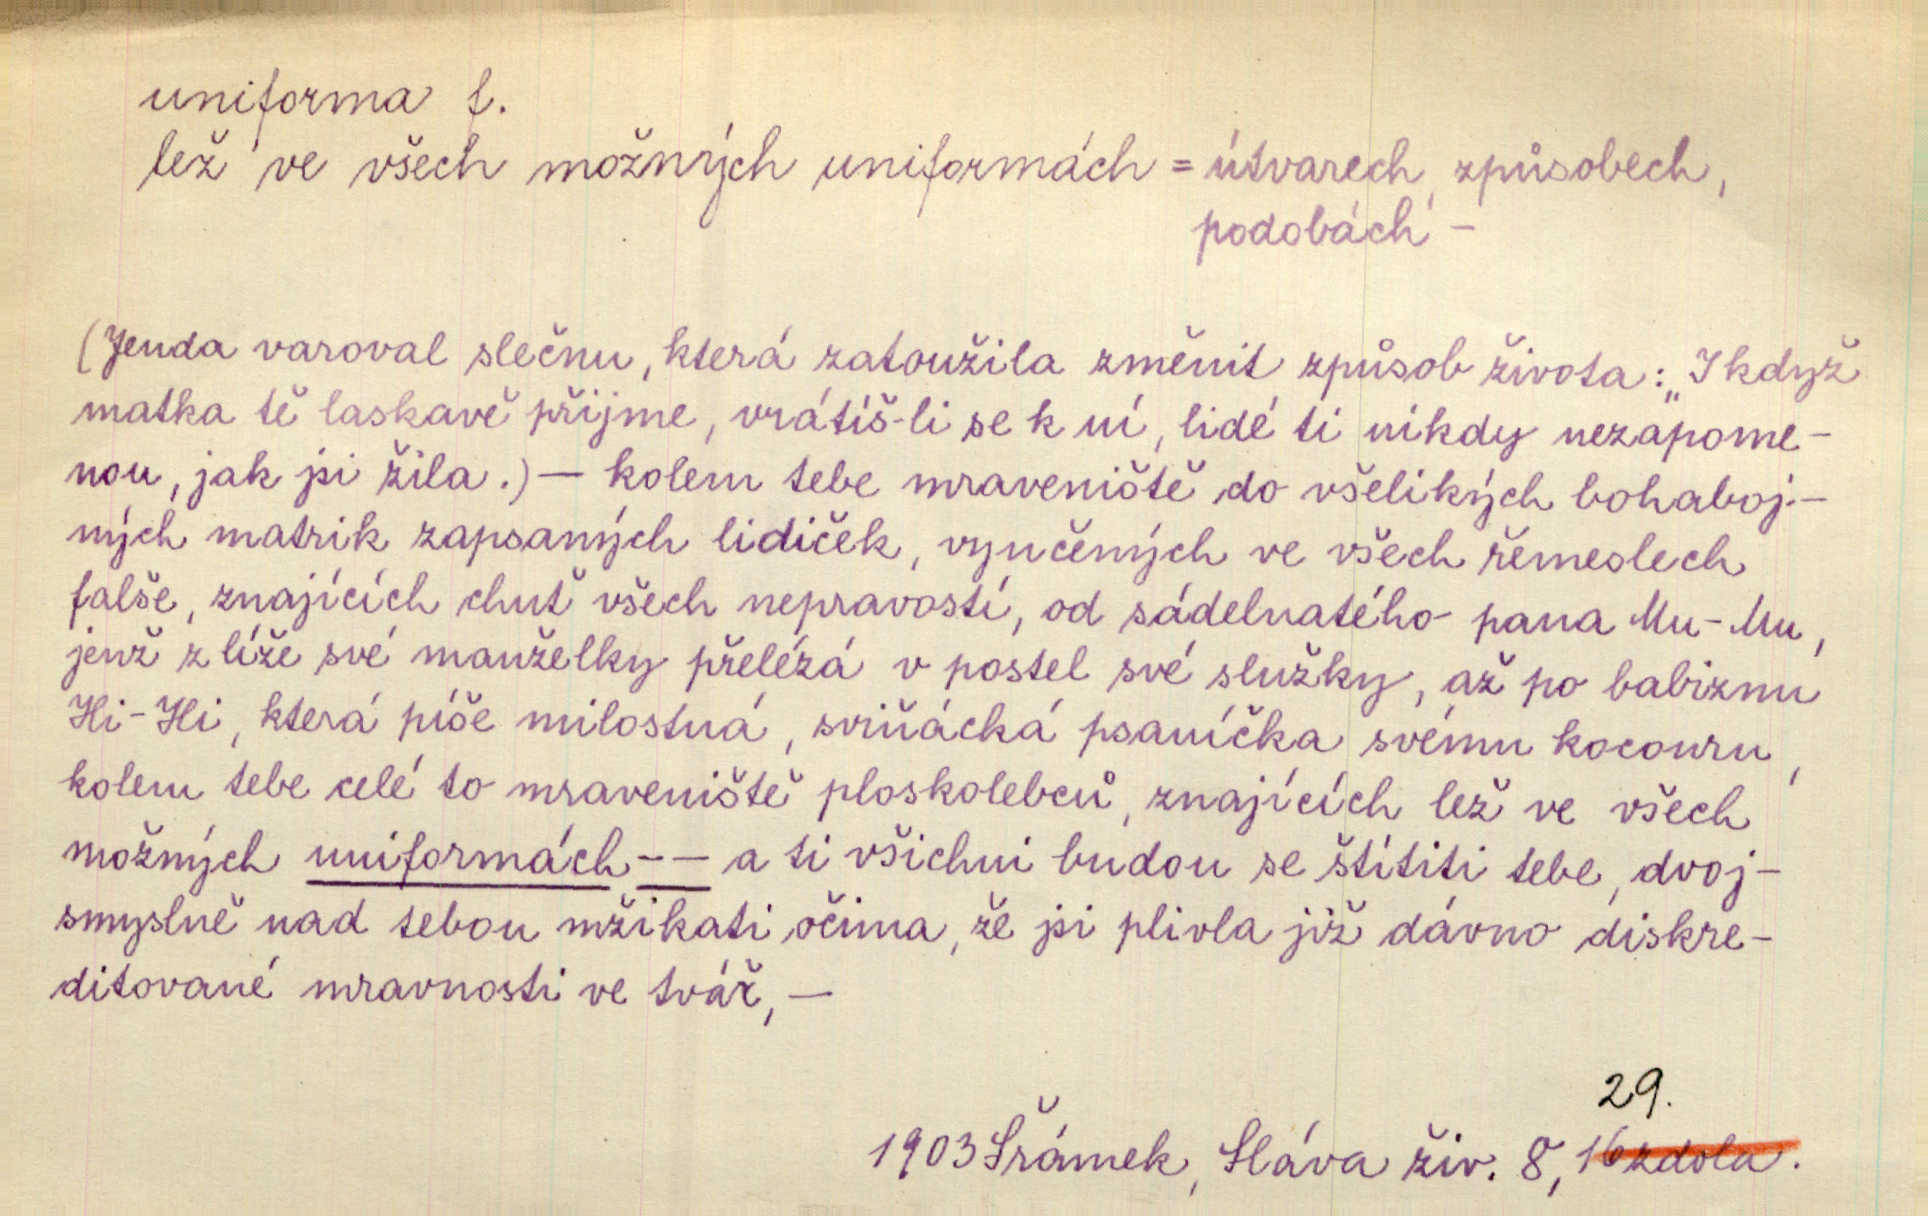 uniforma f.
lež ve všech možných uniformách = útvarech, způsobech,
podobách –
(Jenda varoval slečnu, která zatoužila změnit způsob života: „I když
matka tě laskavě přijme, vrátíš-li se k ní, lidé ti nikdy nezapome-
nou, jak jsi žila.) — kolem tebe mraveniště do všelikých bohaboj-
ných matrik zapsaných lidiček, vyučených ve všech řemeslech
falše, znajících chuť všech nepravostí, od sádelnatého pana Mu-Mu,
jenž z líže své manželky přelézá v postel své služky, až po babiznu
Hi-Hi, která píše milostná, sviňácká psaníčka svému kocouru,
kolem tebe celé to mraveniště ploskolebců, znajících lež ve všech
možných uniformách -— a ti všichni budou se štítiti tebe, dvoj-
smyslně nad tebou mžikati očima, že jsi plivla již dávno diskre-
ditované mravnosti ve tvář, —
29.
1903 Šrámek, Sláva živ. 8, 16 zdola.